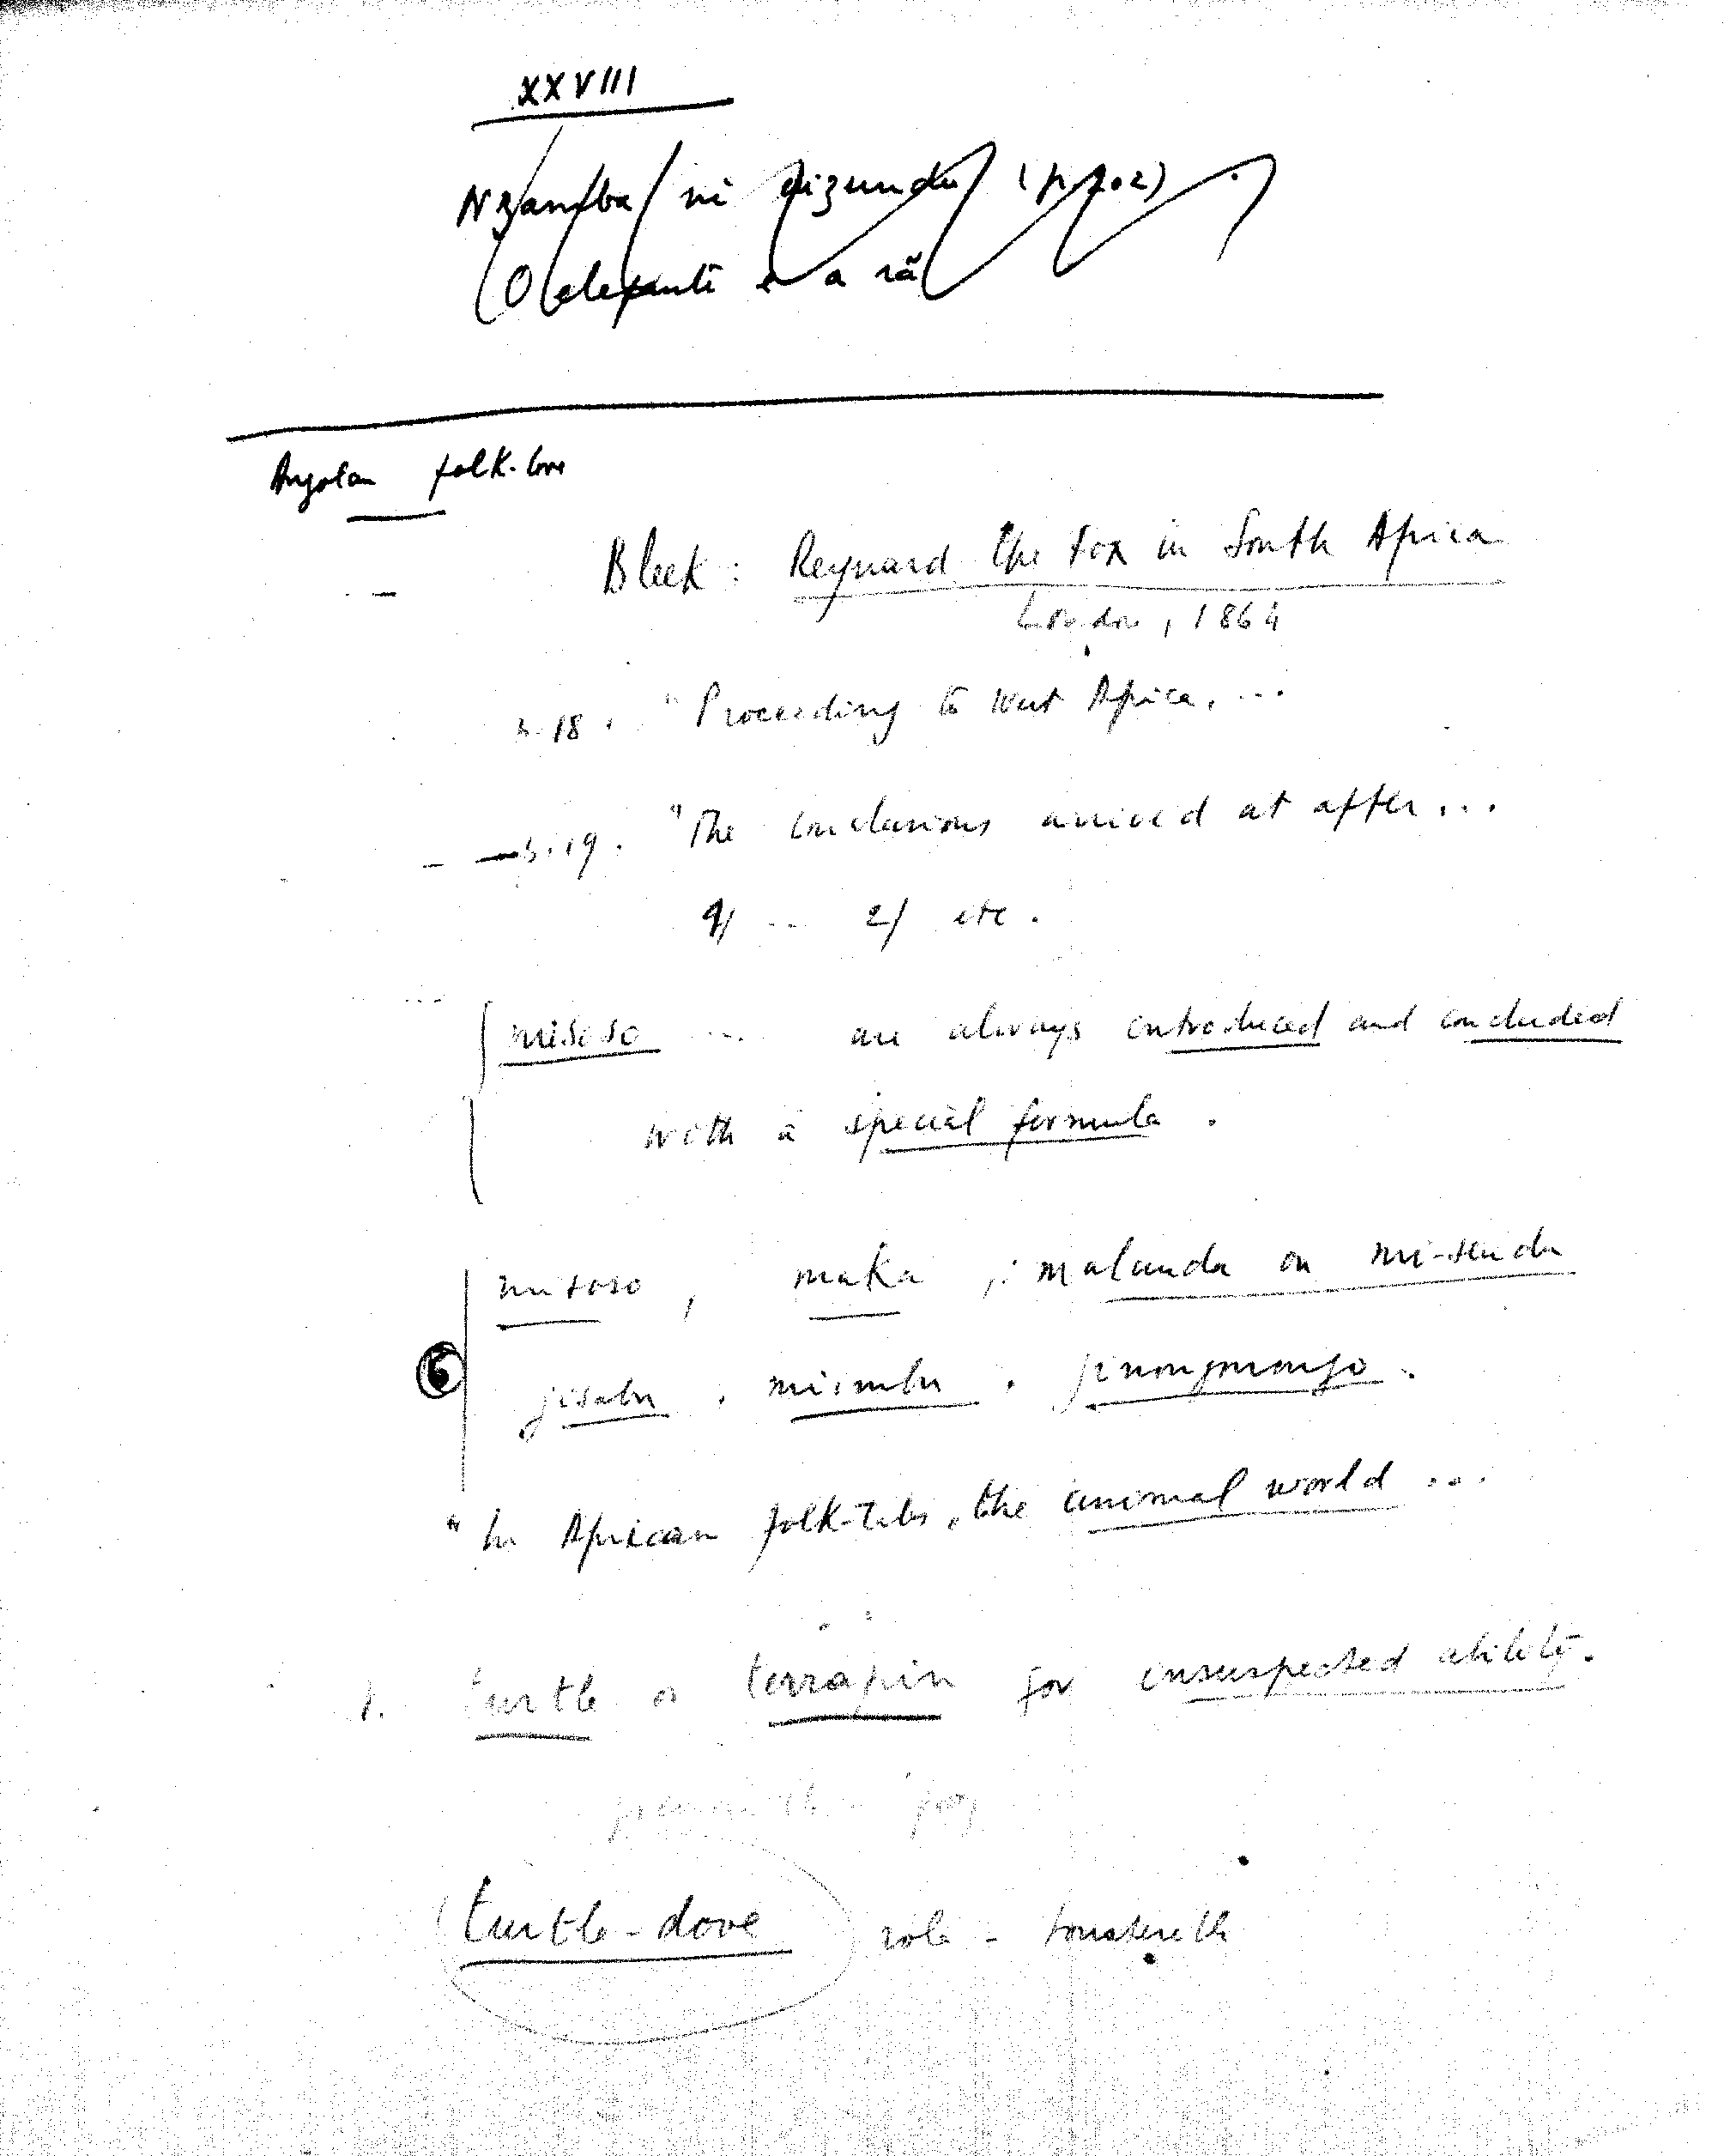 XXVIII
Nzamba ni dizundu (p. 202)
(O elefante e a rã
Angolan folk-lore
Bleek: Reynard the Fox in South Africa
London, 1864
p. 18. "Proceeding to West Africa, ...
p. 19. "The conclusions arrived at after ...
1/ ... 2/ etc.
misoso ... are always introduced and concluded
with a special formula.
misoso, maka, malunda or mi-sendu
jisabu, miimbu, jinongonongo.
"In African folk-tales, the animal world ...
turtle or terrapin for unsuspected ability.
frog
turtle-dove role -